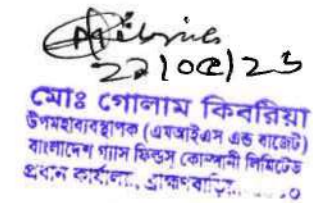 22/05/23
মোঃ গোলাম কিবরিয়া
উপমহাব্যবস্থাপক (এমআইএস এন্ড বাজেট)
বাংলাদেশ গ্যাস ফিল্ডস্ কোম্পানী লিমিটেড
প্রধান কার্যালয়, ব্রাহ্মণবাড়িয়া